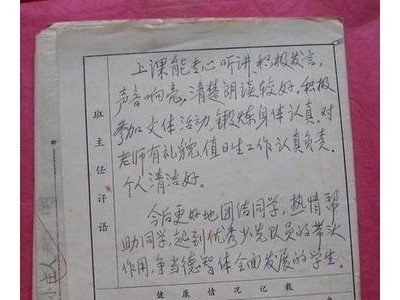 上课能专心听讲,积极发言,
声音响亮,清楚朗读较好。积极
参加文体活动,锻炼身体认真。对
老师有礼貌,值日生工作认真负责。
个人清洁好。
今后更好地团结同学,热情帮
助同学,起到优秀少先队员的带头
作用,争当德智体全面发展的学生。
班主任评语
健康情况记载